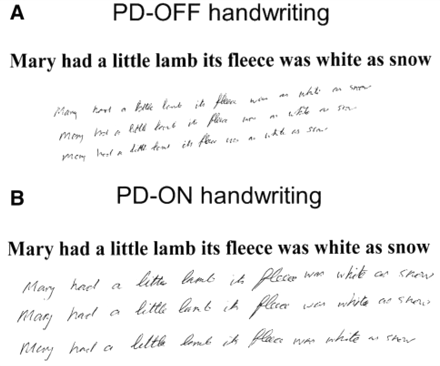 A PD-OFF handwriting
Mary had a little lamb its fleece was white as snow
Mary had a little lamb its fleece was white as snow
Mary had a little lamb its fleece was white as snow
Mary had a little lamb its fleece was white as snow
B PD-ON handwriting
Mary had a little lamb its fleece was white as snow
Mary had a little lamb its fleece was white as snow
Mary had a little lamb its fleece was white as snow
Mary had a little lamb its fleece was white as snow